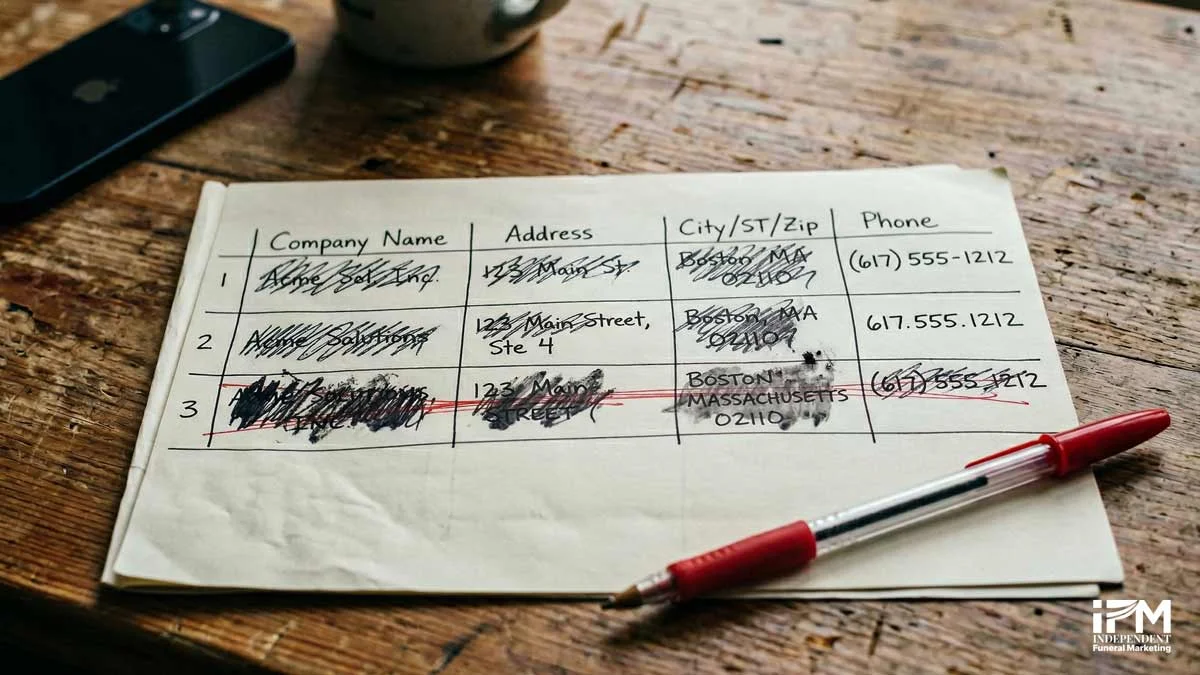 Company Name Address City/ST/Zip Phone
1 Acme Sol, Inc. 123 Main St. Boston MA (617) 555-1212
02110
2 Acme Solutions 123 Main Street, Boston, MA 617.555.1212
Ste 4 02110
3 Acme Solutions, 123 Main BOSTON (617) 555-1212
INC. STREET MASSACHUSETTS
02110
iFM
INDEPENDENT
Funeral Marketing